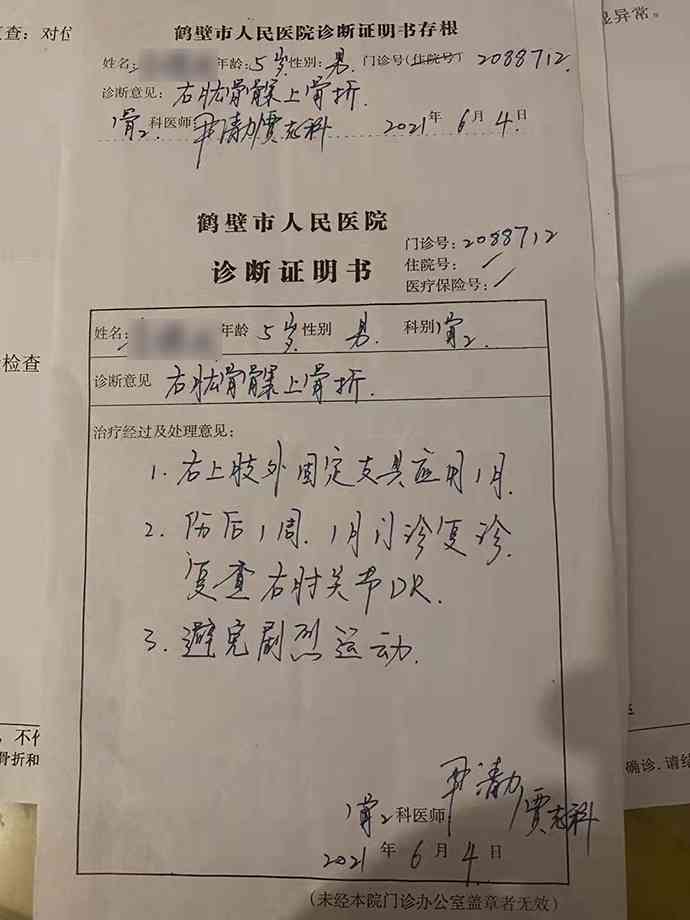 查：对位
显异常。
鹤壁市人民医院诊断证明书存根
姓名: 年龄: 5岁 性别: 男 门诊号(住院号) 2088712
诊断意见: 右肱骨髁上骨折.
骨2 科医师 贾志科 2021年 6月 4日
鹤壁市人民医院
诊断证明书
门诊号: 2088712
住院号: /
医疗保险号: /
姓名: 年龄 5岁 性别 男 科别 骨2
诊断意见 右肱骨髁上骨折.
治疗经过及处理意见:
1. 右上肢外固定支具应用1月.
2. 伤后1周、1月门诊复诊.
复查右肘关节DR.
3. 避免剧烈运动.
检查
，不
骨折和
确诊,请结
骨2 科医师: 贾志科
2021 年 6 月 4 日
(未经本院门诊办公室盖章者无效)